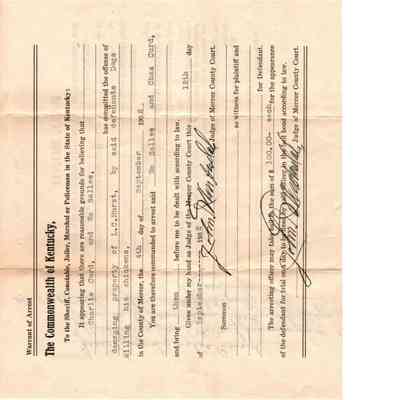 Warrant of Arrest
The Commonwealth of Kentucky,
To the Sheriff, Constable, Jailer, Marshal or Policeman in the State of Kentucky:
It appearing that there are reasonable grounds for believing that
Charlie Curd, and Ho Sallee,
has committed the offense of
damaging property of L.D.Hurst, by said defendants Dogs
killing his chickens,
in the County of Mercer, the 4th day of September 190
You are therefore commanded to arrest said Ho Sallee and Chas Curd,
and bring them before me to be dealt with according to law.
Given under my hand as Judge of the Mercer County Court this 12th day
of September 190
Judge of Mercer County Court.
Summon
as witness for plaintiff and
for Defendant.
The arresting officer may take bail in the sum of $ 100.00- each for the appearance
of the defendant for trial on day to be fixed by said officer in the bail bond according to law.
Judge of Mercer County Court.